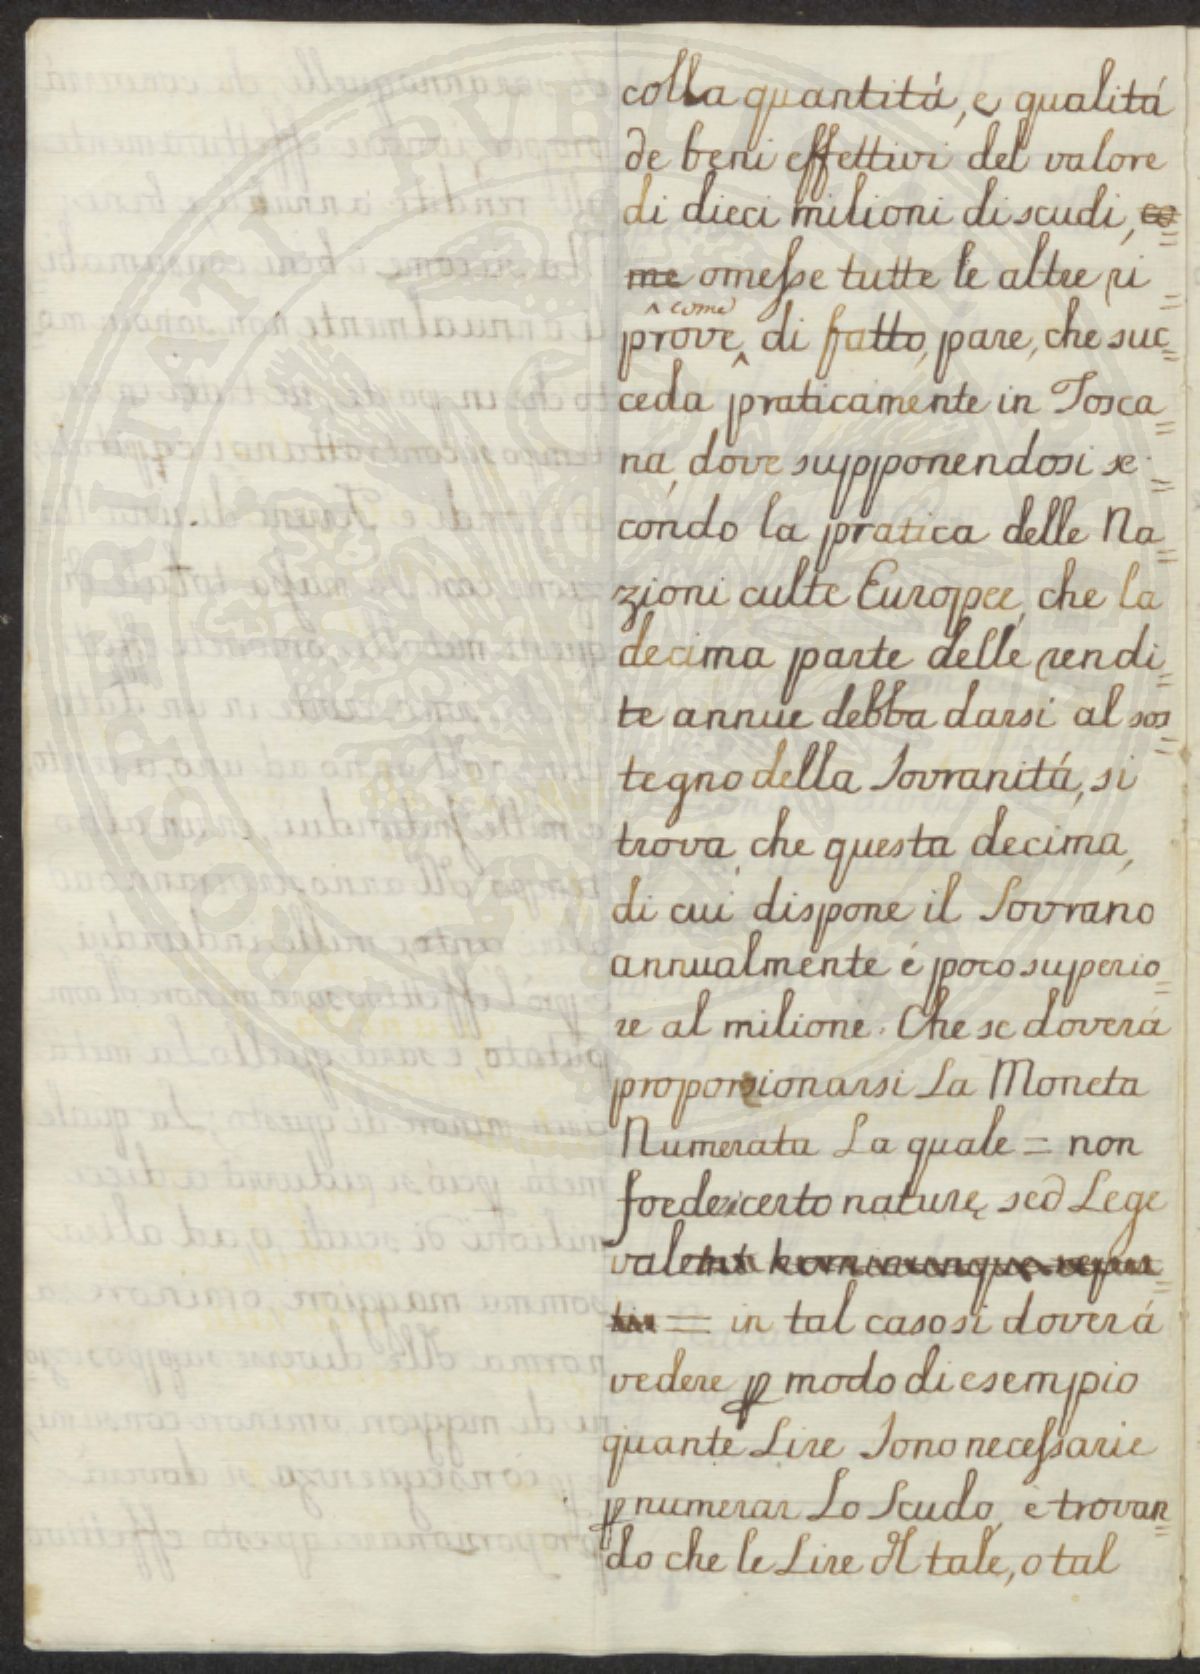 colla quantitá, e qualitá
de beni effettivi del valore
di dieci milioni di scudi, co=
me omesse tutte le altre ri=
^ come
prove ^ di fatto, pare, che suc=
ceda praticamente in Tosca=
na, dove supponendosi se=
condo la pratica delle Na=
zioni culte Europee, che la
decima parte delle rendi=
te annue debba darsi al sos=
tegno della Sovranitá, si
trova, che questa decima,
di cui dispone il Sovrano
annualmente é poco superio=
re al milione. Che se doverá
proporzionarsi La Moneta
Numerata La quale = non
foedere certo naturę, sed Lege
valent
= in tal caso si doverá
vedere ꝑ modo di esempio
quante Lire Sono necessarie
ꝑ numerar Lo Scudo, e trovan=
do che le Lire di tale, o tal
PVBLICAE PROSPERITATI